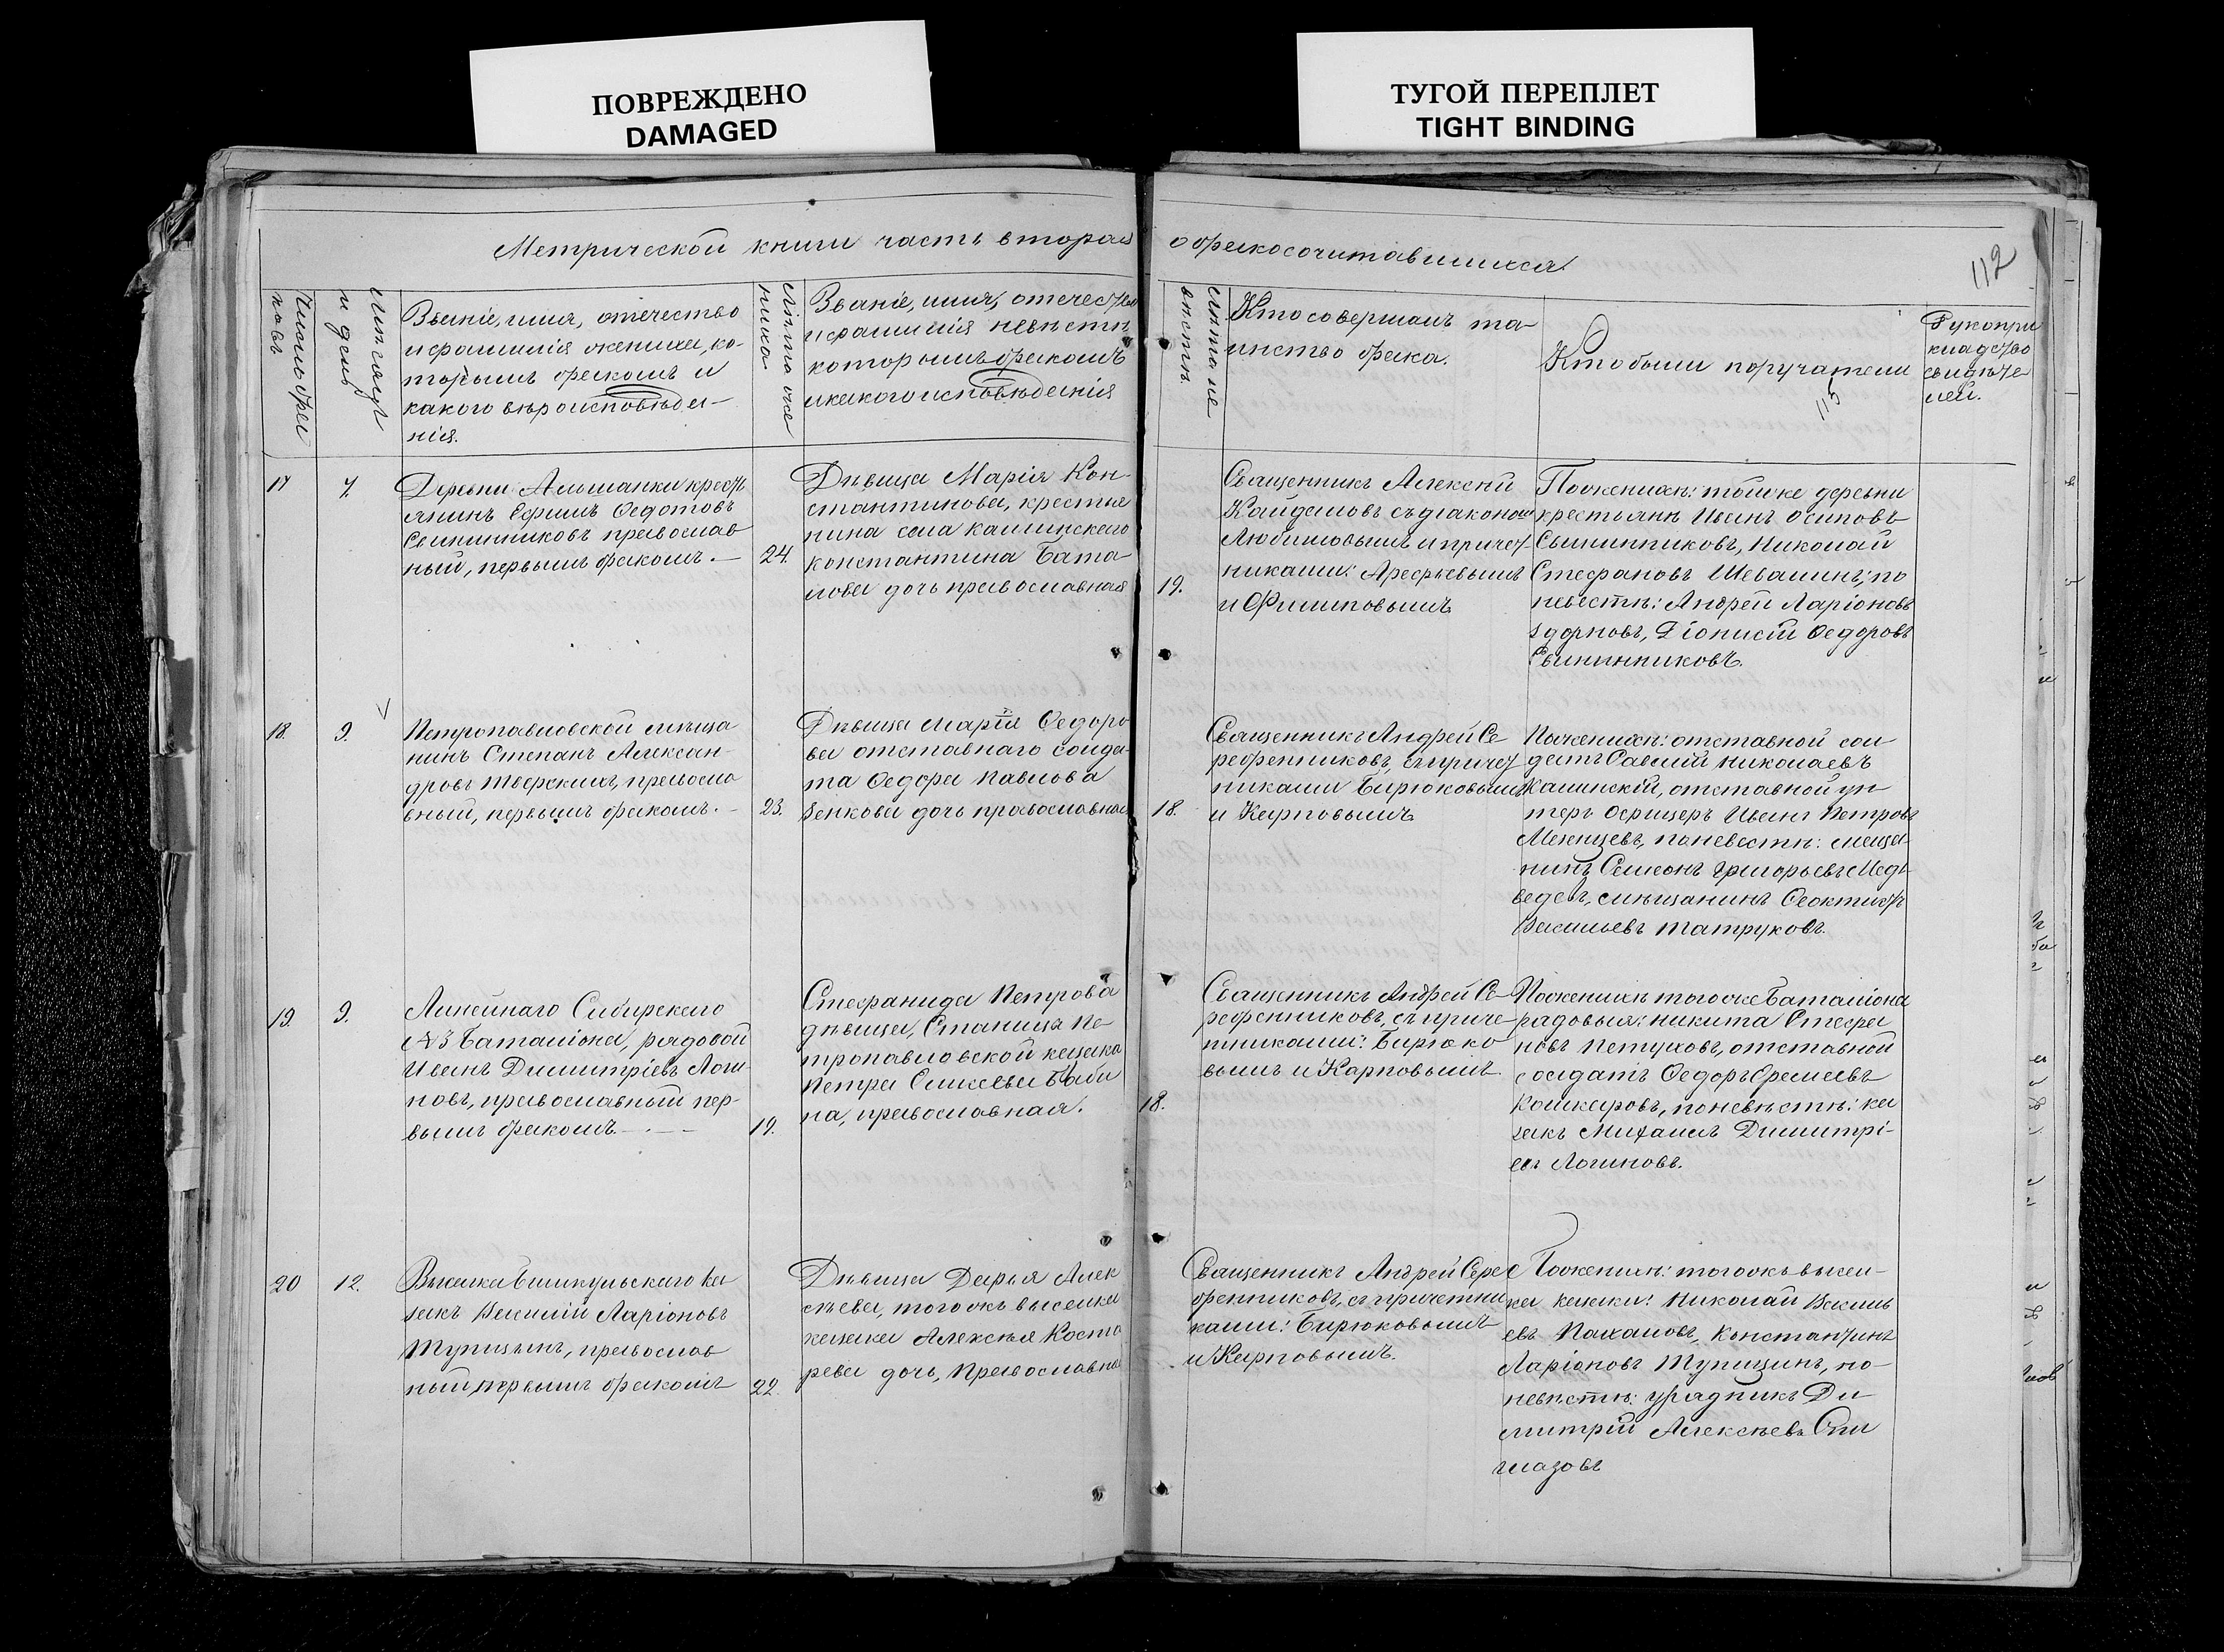 ПОВРЕЖДЕНО
DAMAGED
ТУГОЙ ПЕРЕПЛЕТ
TIGHT BINDING
Метрической книги часть вторая
о бракосочитавшихся.
112
Число бра
ковъ
Мѣсяцъ
и день
Званіе, имя, отечество
и фамилія жениха, ко-
торымъ бракомъ и
какого вѣроисповѣда-
нія.
Лѣта же
ниха
Званіе, имя, отечество
и фамилія невѣсты
которымъ бракомъ
и какого исповѣданія
Лѣта не
вѣсты
Кто совершалъ та-
инство брака.
Кто были поручатели
115
Рукопри
кладство
свидѣте
лей.
17
7.
Деревни Альшанки кресть
янинъ Ефимъ Ѳедотовъ
Свининниковъ православ
ный, первымъ бракомъ. —
24.
Дѣвица Марія Кон-
стантинова, крестья
нина села Камынскаго
Константина Бата-
лова дочь православная
19.
Священникъ Алексѣй
Кайдаловъ съ діакономъ
Любимовымъ и причет-
никами: Арефьевымъ
и Филиповымъ
По женихѣ: той же деревни
крестьяне Иванъ Осиповъ
Свининниковъ, Николай
Стефановъ Шевалинъ; по
невестѣ: Андрей Ларіоновъ
Здорновъ, Діонисій Ѳедоровъ
Свининниковъ.
18.
9.
Петропавловской мѣща
нинъ Степанъ Алексан-
дровъ Тверскихъ, правосла
вный, первымъ бракомъ. —
23.
Дѣвица Марія Ѳедоро
ва отставнаго солда-
та Ѳедора Павлова
Зенкова дочь православная
18.
Священникъ Андрей Се
ребренниковъ, съ причет
никами Бирюковымъ
и Карповымъ
По женихѣ: отставной сол
датъ Савелій Николаевъ
Калинскій, отставной ун
теръ офицеръ Иванъ Петровъ
по невестѣ: меща-
нинъ Семеонъ Григорьевъ Медъ
ведевъ, мѣщанинъ Ѳеоктистъ
Васильевъ Татруковъ.
19.
9.
Линейнаго Сибирскаго
№3 Баталіона, рядовой
Иванъ Димитріевъ Логи
новъ, православный пер-
вымъ бракомъ. — . —
19.
Стефанида Петрова
дѣвица, Станицы Пе-
тропавловской казака
Петра Баби
на, православная.
18.
Священникъ Андрей Се-
ребренниковъ, съ приче-
тниками: Бирюко
вымъ и Карповымъ
По женихѣ того же Баталіона
радовыя: Никита Стефа
новъ Петуховъ, отставной
солдатъ Ѳедоръ Еремеевъ
Кошкаровъ, по невѣстѣ: ка
закъ Михаилъ Димитрі-
евъ Логиновъ.
20
12.
Выселка Бишкульскаго ка
закъ Василій Ларіоновъ
Тупицынъ, православ
ный, первымъ бракомъ
22.
Дѣвица Дарья Алек
сѣева, того жъ выселка
казака Алексѣя Косто
рева дочь, Православная
Священникъ Андрей Сере
бренниковъ, съ причетни
ками: Бирюковымъ
и Карповымъ.
По женихѣ: того жъ высел-
ка казаки: Николай Василь
евъ Пахановъ, Константинъ
Ларіоновъ Тупицинъ, по-
невѣстѣ: урядникъ Ди
митрій Алексѣевъ
глазовъ